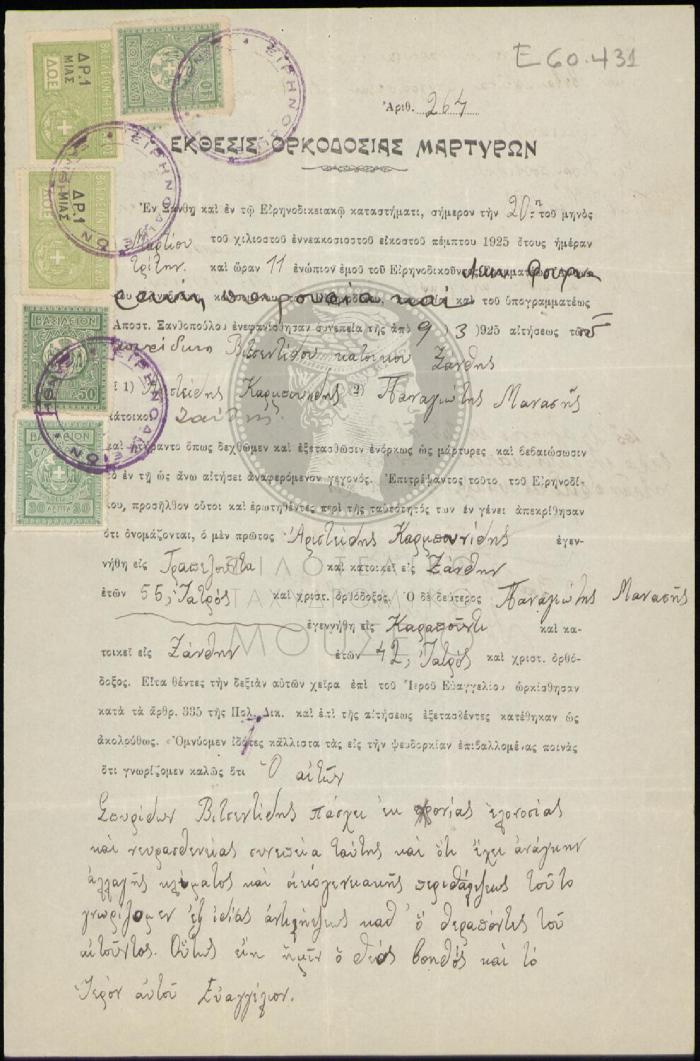 Ε60.431
Ἀριθ. 264
ΕΚΘΕΣΙΣ ΟΡΚΟΔΟΣΙΑΣ ΜΑΡΤΥΡΩΝ
Ἐν Ξάνθῃ καὶ ἐν τῷ Εἰρηνοδικειακῷ καταστήματι, σήμερον τὴν 20ην τοῦ μηνὸς
Μαρτίου τοῦ χιλιοστοῦ ἐννεακοσιοστοῦ εἰκοστοῦ πέμπτου 1925 ἔτους ἡμέραν
Τρίτην καὶ ὥραν 11 ἐνώπιον ἐμοῦ τοῦ Εἰρηνοδικοῦντος
καὶ καὶ τοῦ ὑπογραμματέως
Ἀποστ. Ξανθοπούλου ἐνεφανίσθησαν συνεπείᾳ τῆς ἀπὸ 9)3)925 αἰτήσεως τοῦ
Βιτσεντίδου κατοίκου Ξάνθης
1) Καρμπονίδης 2) Παναγιώτης Μανασῆς
κάτοικοι Ξάνθης
καὶ ὅπως δεχθῶμεν καὶ ἐξετασθῶσιν ἐνόρκως ὡς μάρτυρες καὶ βεβαιώσωσιν
τὸ ἐν τῇ ὡς ἄνω αἰτήσει ἀναφερόμενον γεγονός. Ἐπιτρέψαντος τοῦτο τοῦ Εἰρηνοδί-
κου, προσῆλθον οὗτοι καὶ ἐρωτηθέντες περὶ τῆς ταὐτότητός των ἐν γένει ἀπεκρίθησαν
ὅτι ὀνομάζονται, ὁ μὲν πρῶτος Ἀριστείδης Καρμπονίδης ἐγεν-
νήθη εἰς Τραπεζοῦντα καὶ κατοικεῖ εἰς Ξάνθην
ἐτῶν 55, Ἰατρός καὶ χριστ. ὀρθόδοξος. Ὁ δὲ δεύτερος Παναγιώτης Μανασῆς
ἐγεννήθη εἰς καὶ κα-
τοικεῖ εἰς Ξάνθην ἐτῶν 42, Ἰατρός καὶ χριστ. ὀρθό-
δοξος. Εἶτα θέντες τὴν δεξιὰν αὐτῶν χεῖρα ἐπὶ τοῦ Ἱεροῦ Εὐαγγελίου ὡρκίσθησαν
κατὰ τὰ ἄρθρ. 335 τῆς Πολ. Δικ. καὶ ἐπὶ τῆς αἰτήσεως ἐξετασθέντες κατέθηκαν ὡς
ἀκολούθως. «Ὀμνύομεν εἰδότες κάλλιστα τὰς εἰς τὴν ψευδορκίαν ἐπιβαλλομένας ποινὰς
ὅτι γνωρίζομεν καλῶς ὅτι Ὁ αἰτῶν
Σπυρίδων Βιτσεντίδης πάσχει ἐκ χρονίας ἑλονοσίας
καὶ νευρασθενείας συνεπείᾳ ταύτης καὶ ὅτι ἔχει ἀνάγκην
ἀλλαγῆς κλίματος καὶ οἰκογενειακῆς περιθάλψεως τοῦτο
γνωρίζομεν ἐξ ἰδίας ἀντιλήψεως καθ' ὃ θεράποντες τοῦ
αἰτοῦντος. Οὕτως εἴη ἡμῖν ὁ Θεὸς βοηθὸς καὶ τὸ
Ἱερὸν αὐτοῦ Εὐαγγέλιον.
ΔΡ.1
ΜΙΑΣ
ΔΡ.1
ΜΙΑΣ
ΒΑΣΙΛΕΙΟΝ
50
ΒΑΣΙΛΕΙΟΝ
30 ΛΕΠΤΑ 30
ΕΙΡΗΝΟΔΙΚΕΙΟΝ
ΦΙΛΟΤΕΛΙΚΟ
ΤΑΧΥΔΡΟΜΙΚΟ
ΜΟΥΣΕΙΟ